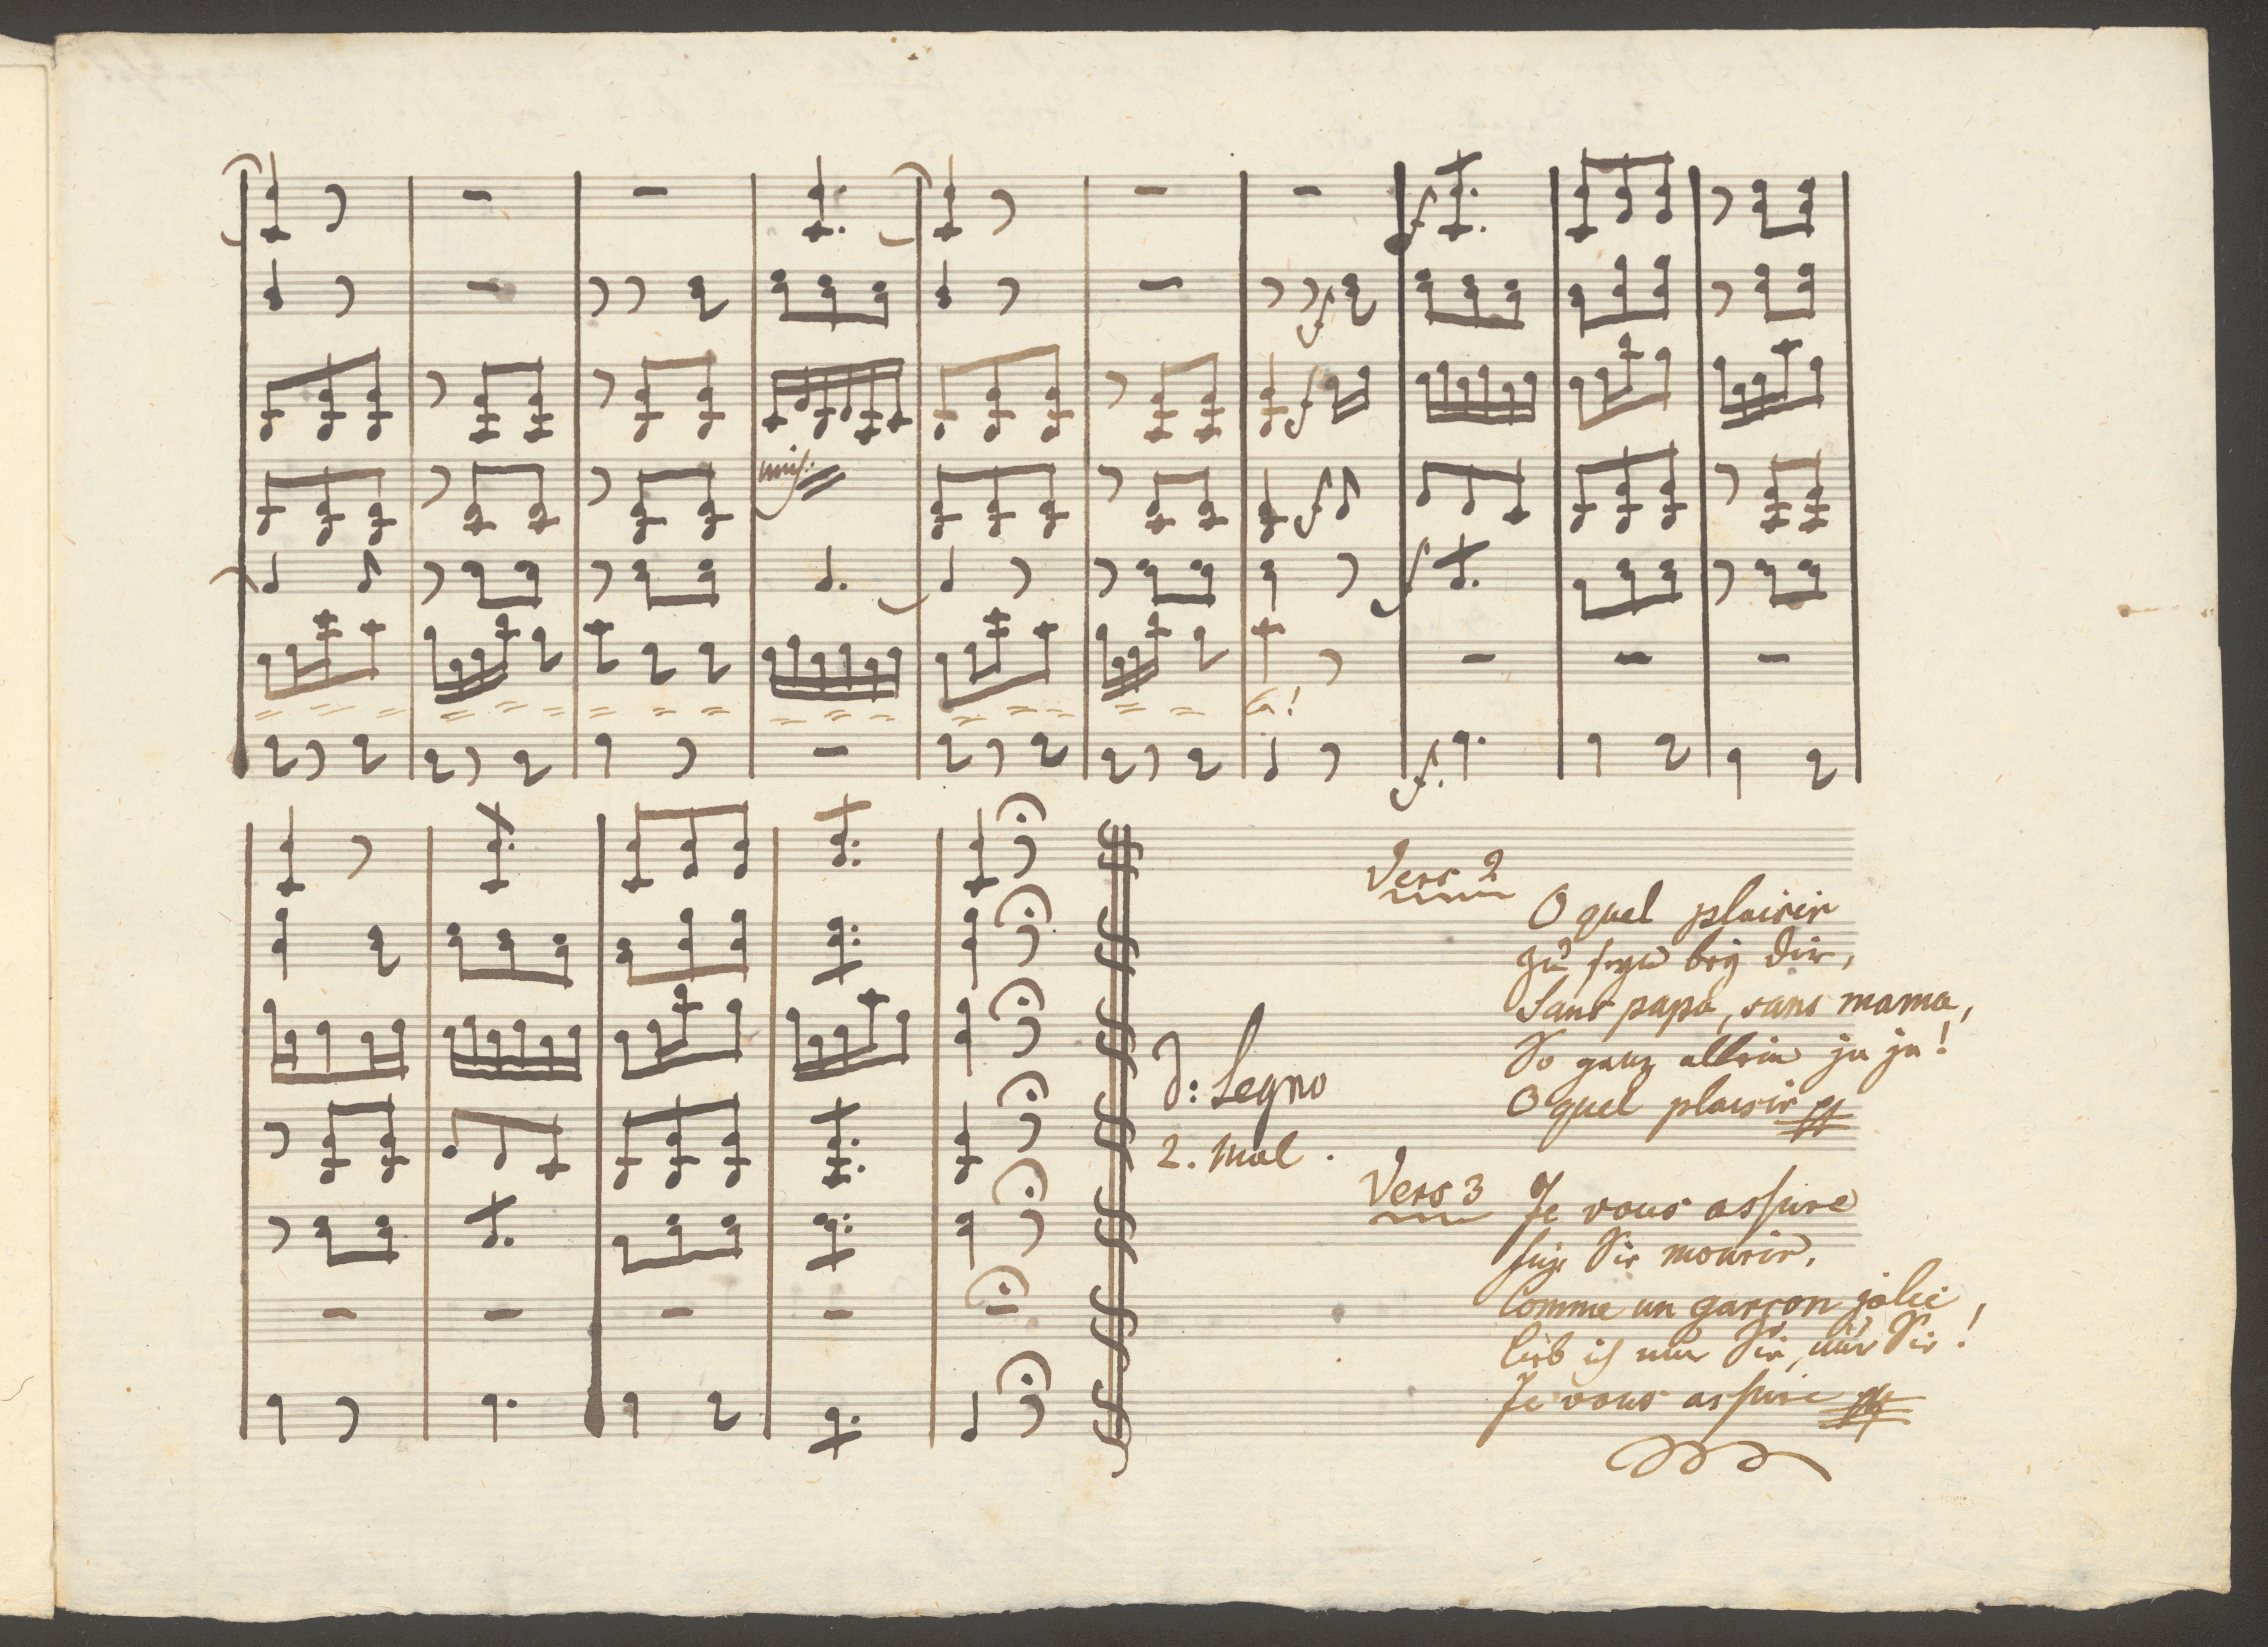 f
f
f
f
unis:
f
f
a!
f.
Vers 2
O quel plaisir
zu seyn bey dir,
Sans papa, sans mama,
So ganz allein ja ja!
O quel plaisir
d: Segno
2. mal.
Vers 3
Je vous assure
für Sie mourir.
Comme un garçon jolie
lieb ich nur Sie, nur Sie!
Je vous assure